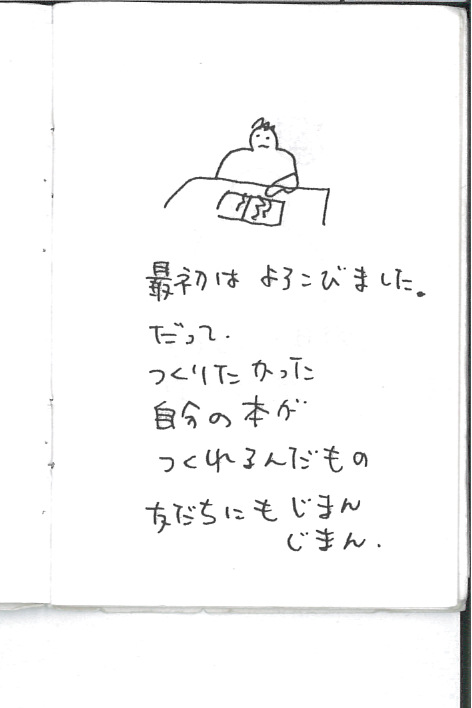 最初は よろこびました。
だって.
つくりたかった
自分の本が
つくれるんだもの
友だちにも じまん
じまん.